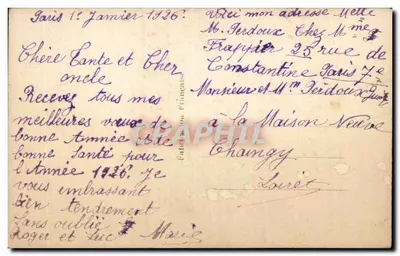 Paris 1er Janvier 1926.
Chère Tante et Cher
oncle
Recevez tous mes
meilleures vœux de
bonne Année et de
bonne Santé pour
l'Année 1926. Je
vous embrassant
bien tendrement
sans oublié
Roger et Luc Marie
Voici mon adresse Melle
M. Perdoux Chez Mme
Frappier 25 rue de
Constantine Paris 7e
Monsieur et Mme Perdoux
à la Maison Neuve
Chaingy
Loiret
CPARAMA